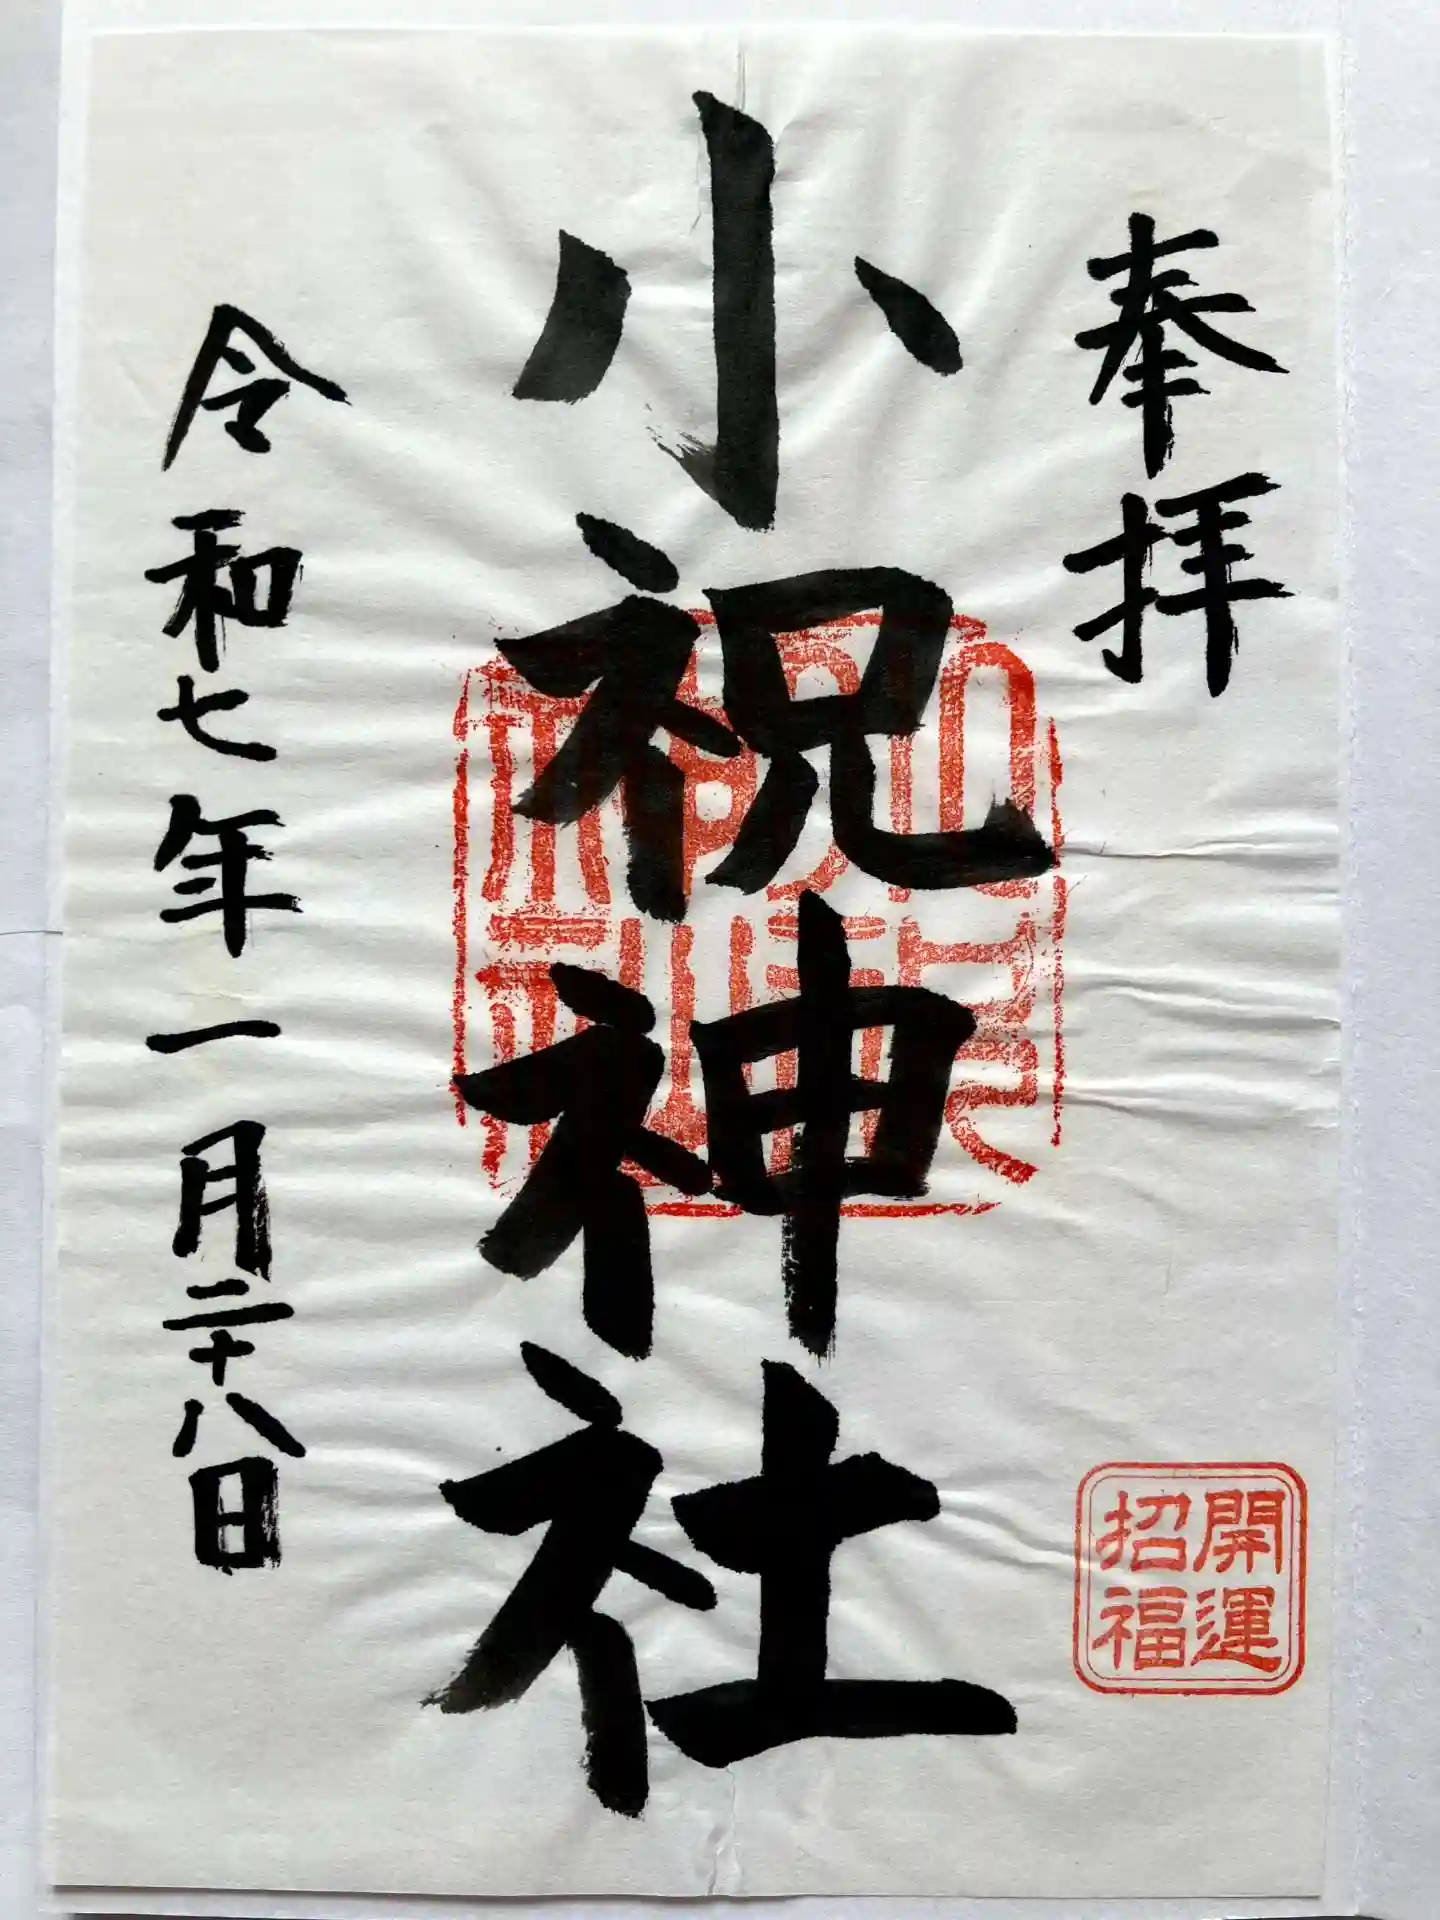 奉拝
開運
招福
小祝神社
令和七年一月二十八日